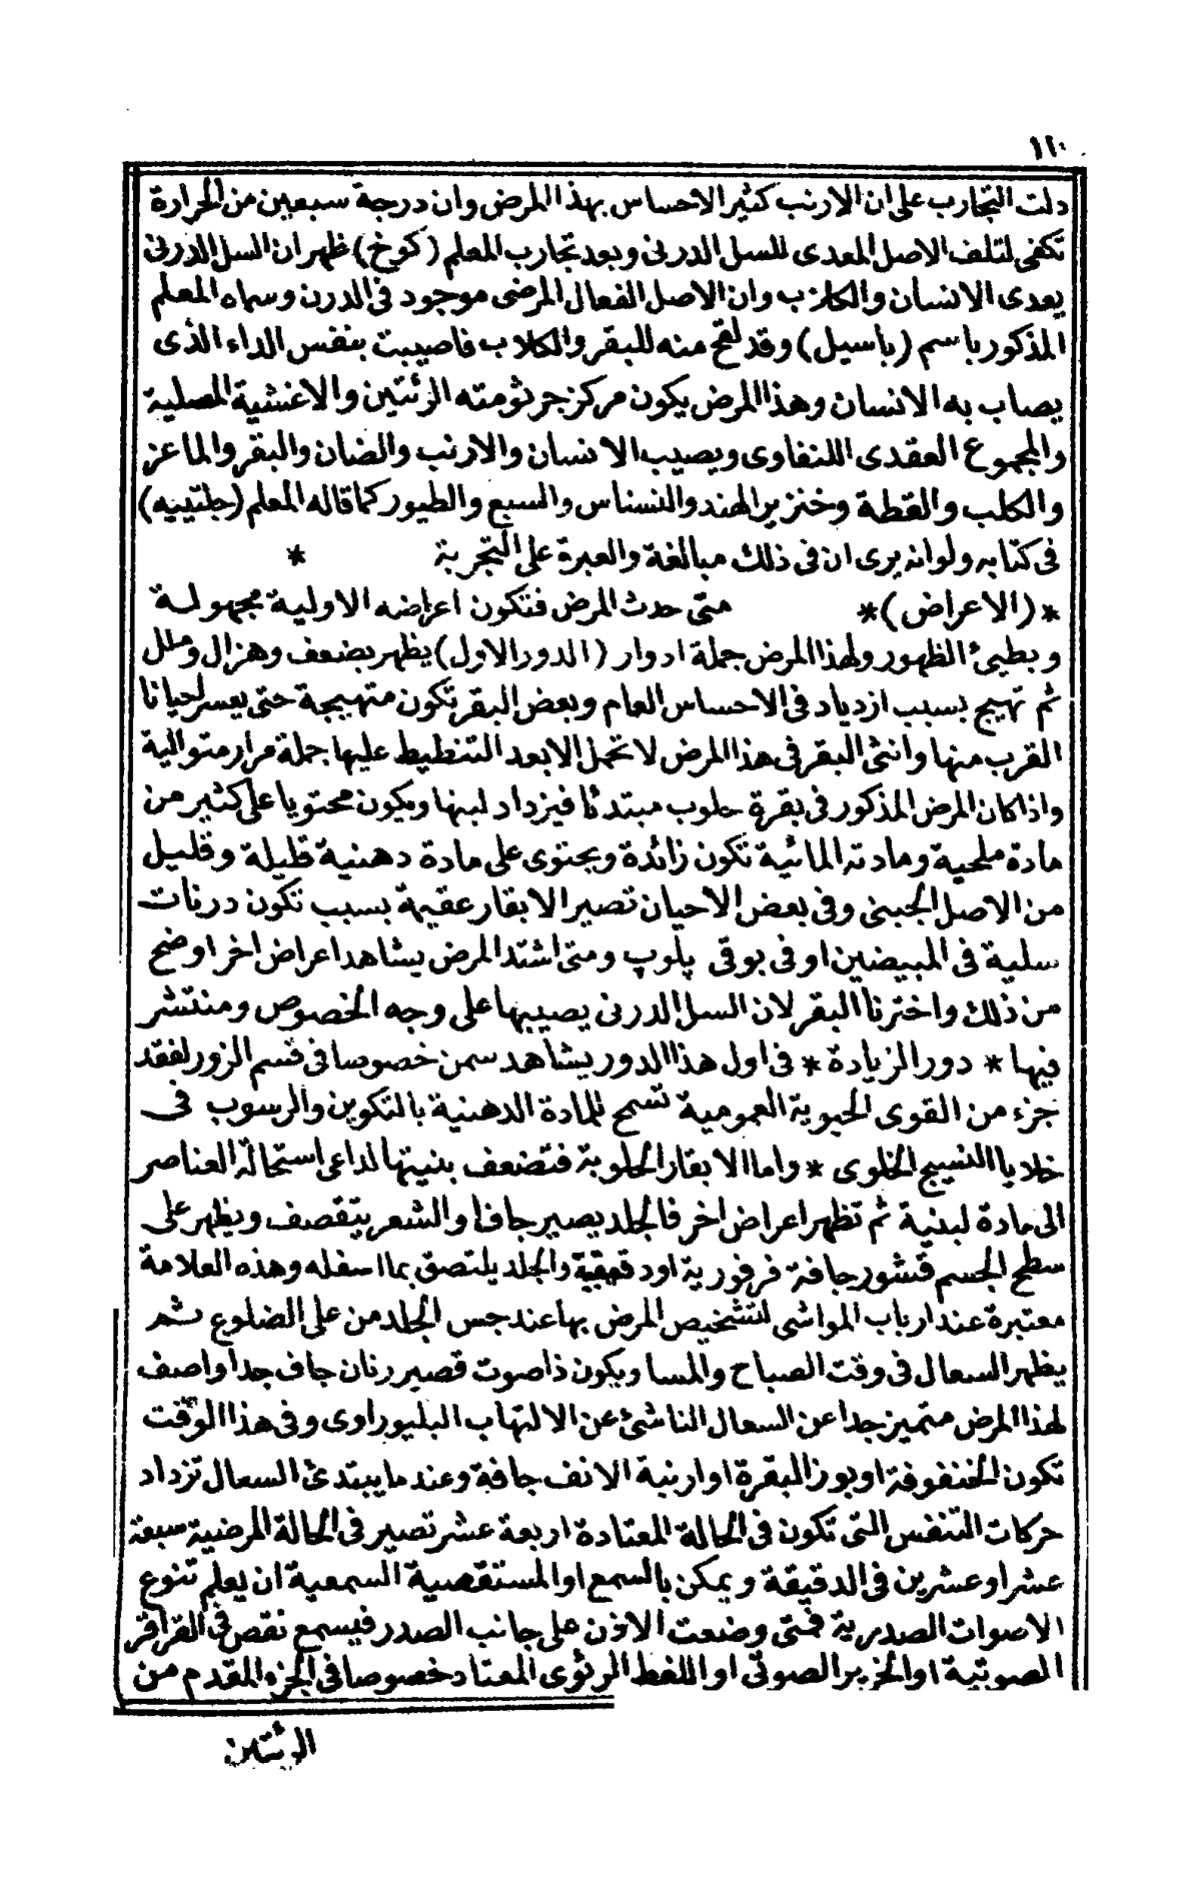 ١١٠
دلت التجارب على ان الارنب كثير الاحساس بهذا المرض وان درجة سبعين من الحرارة
تكفى لتلف الاصل المعدى للسل الدرنى وبعد تجارب المعلم (كوخ) ظهر ان السل الدرنى
يعدى الانسان والكلازب وان الاصل الفعال المرضى موجود فى الدرن وسماه المعلم
المذكور باسم (باسيل) وقد لقح منه للبقر والكلاب فاصيبت بنفس الداء الذى
يصاب به الانسان وهذا المرض يكون مركز جرثومته الرئتين والاغشية المصلية
والمجموع العقدى اللنفاوى ويصيب الانسان والارنب والضان والبقر والماعز
والكلب والقطة وخنزير الهند والنسناس والسبع والطيور كما قاله المعلم (جلتييه)
فى كتابه ولوانه يرى ان فى ذلك مبالغة والعبرة على التجربة *
*(الاعراض)* متى حدث المرض فتكون اعراضه الاولية مجهولة
وبطيئ الظهور ولهذا المرض جملة ادوار (الدور الاول) يظهر بضعف وهزال وملل
ثم تهيج بسبب ازدياد فى الاحساس العام وبعض البقر تكون متهيجة حتى يعسر احيانا
القرب منها وانثى البقر فى هذا المرض لا تحمل الا بعد التنطيط عليها جملة مرار متوالية
واذا كان المرض المذكور فى بقرة حلوب مبتدئا فيزداد لبنها ويكون محتويا على كثير من
مادة ملحية ومادته المائية تكون زائدة ويحتوى على مادة دهنية قليلة وقليل
من الاصل الجبنى وفى بعض الاحيان تصير الابقار عقيمة بسبب تكون درنات
سلية فى المبيضين او فى بوقى پلوپ ومتى اشتد المرض يشاهد اعراض اخر اوضح
من ذلك واخترنا البقر لان السل الدرنى يصيبها على وجه الخصوص ومنتشر
فيها * دور الزيادة * فى اول هذا الدور يشاهد سمن خصوصا فى قسم الزور لفقد
جزء من القوى الحيوية العمومية تسمح للمادة الدهنية بالتكوين والرسوب فى
خلايا النسيج الخلوى * واما الابقار الحلوبة فتضعف بنيتها لداعى استحالة العناصر
الى مادة لبنية ثم تظهر اعراض اخر فالجلد يصير جافا والشعر يتقصف ويظهر على
سطح الجسم قشور جافة فرفورية او دقيقية والجلد يلتصق بما اسفله وهذه العلامة
معتبرة عند ارباب المواشى لتشخيص المرض بها عند جس الجلد من على الضلوع ثم
يظهر السعال فى وقت الصباح والمسا ويكون ذا صوت قصير رنان جاف جدا واصف
لهذا المرض متميز جدا عن السعال الناشئ عن الالتهاب البليوراوى وفى هذا الوقت
تكون الخنفوفة او بوز البقرة او ارنبة الانف جافة وعند ما يبتدئ السعال تزداد
حركات التنفس التى تكون فى الحالة المعتادة اربعة عشر تصير فى الحالة المرضية سبعة
عشر او عشرين فى الدقيقة ويمكن بالسمع او المستقصية السمعية ان يعلم تنوع
الاصوات الصدرية فمتى وضعت الاذن على جانب الصدر فيسمع نقص فى القراقر
الصوتية او الخرير الصوتى او اللغط الرئوى المعتاد خصوصا فى الجزء المقدم من
الرئتين